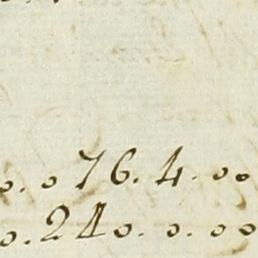 o. o76. 4. oo
o. 240. o. oo